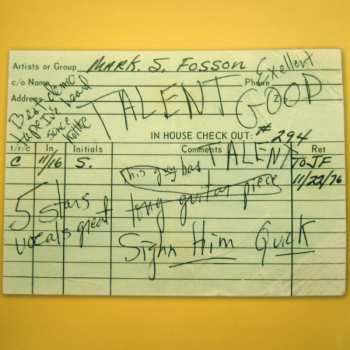 Artists or Group MARK. S. FOSSON
c/o Name Phone Exellent
Address TALENT GOOD
Best demo
tape I've heard
since
IN HOUSE CHECK OUT: #294
t/r/c In Initials Comments Ret
C 11/16 S. This guy has TALENT TO JF
long guitar piece 11/22/76
5 stars
vocals great
Signn Him Quick